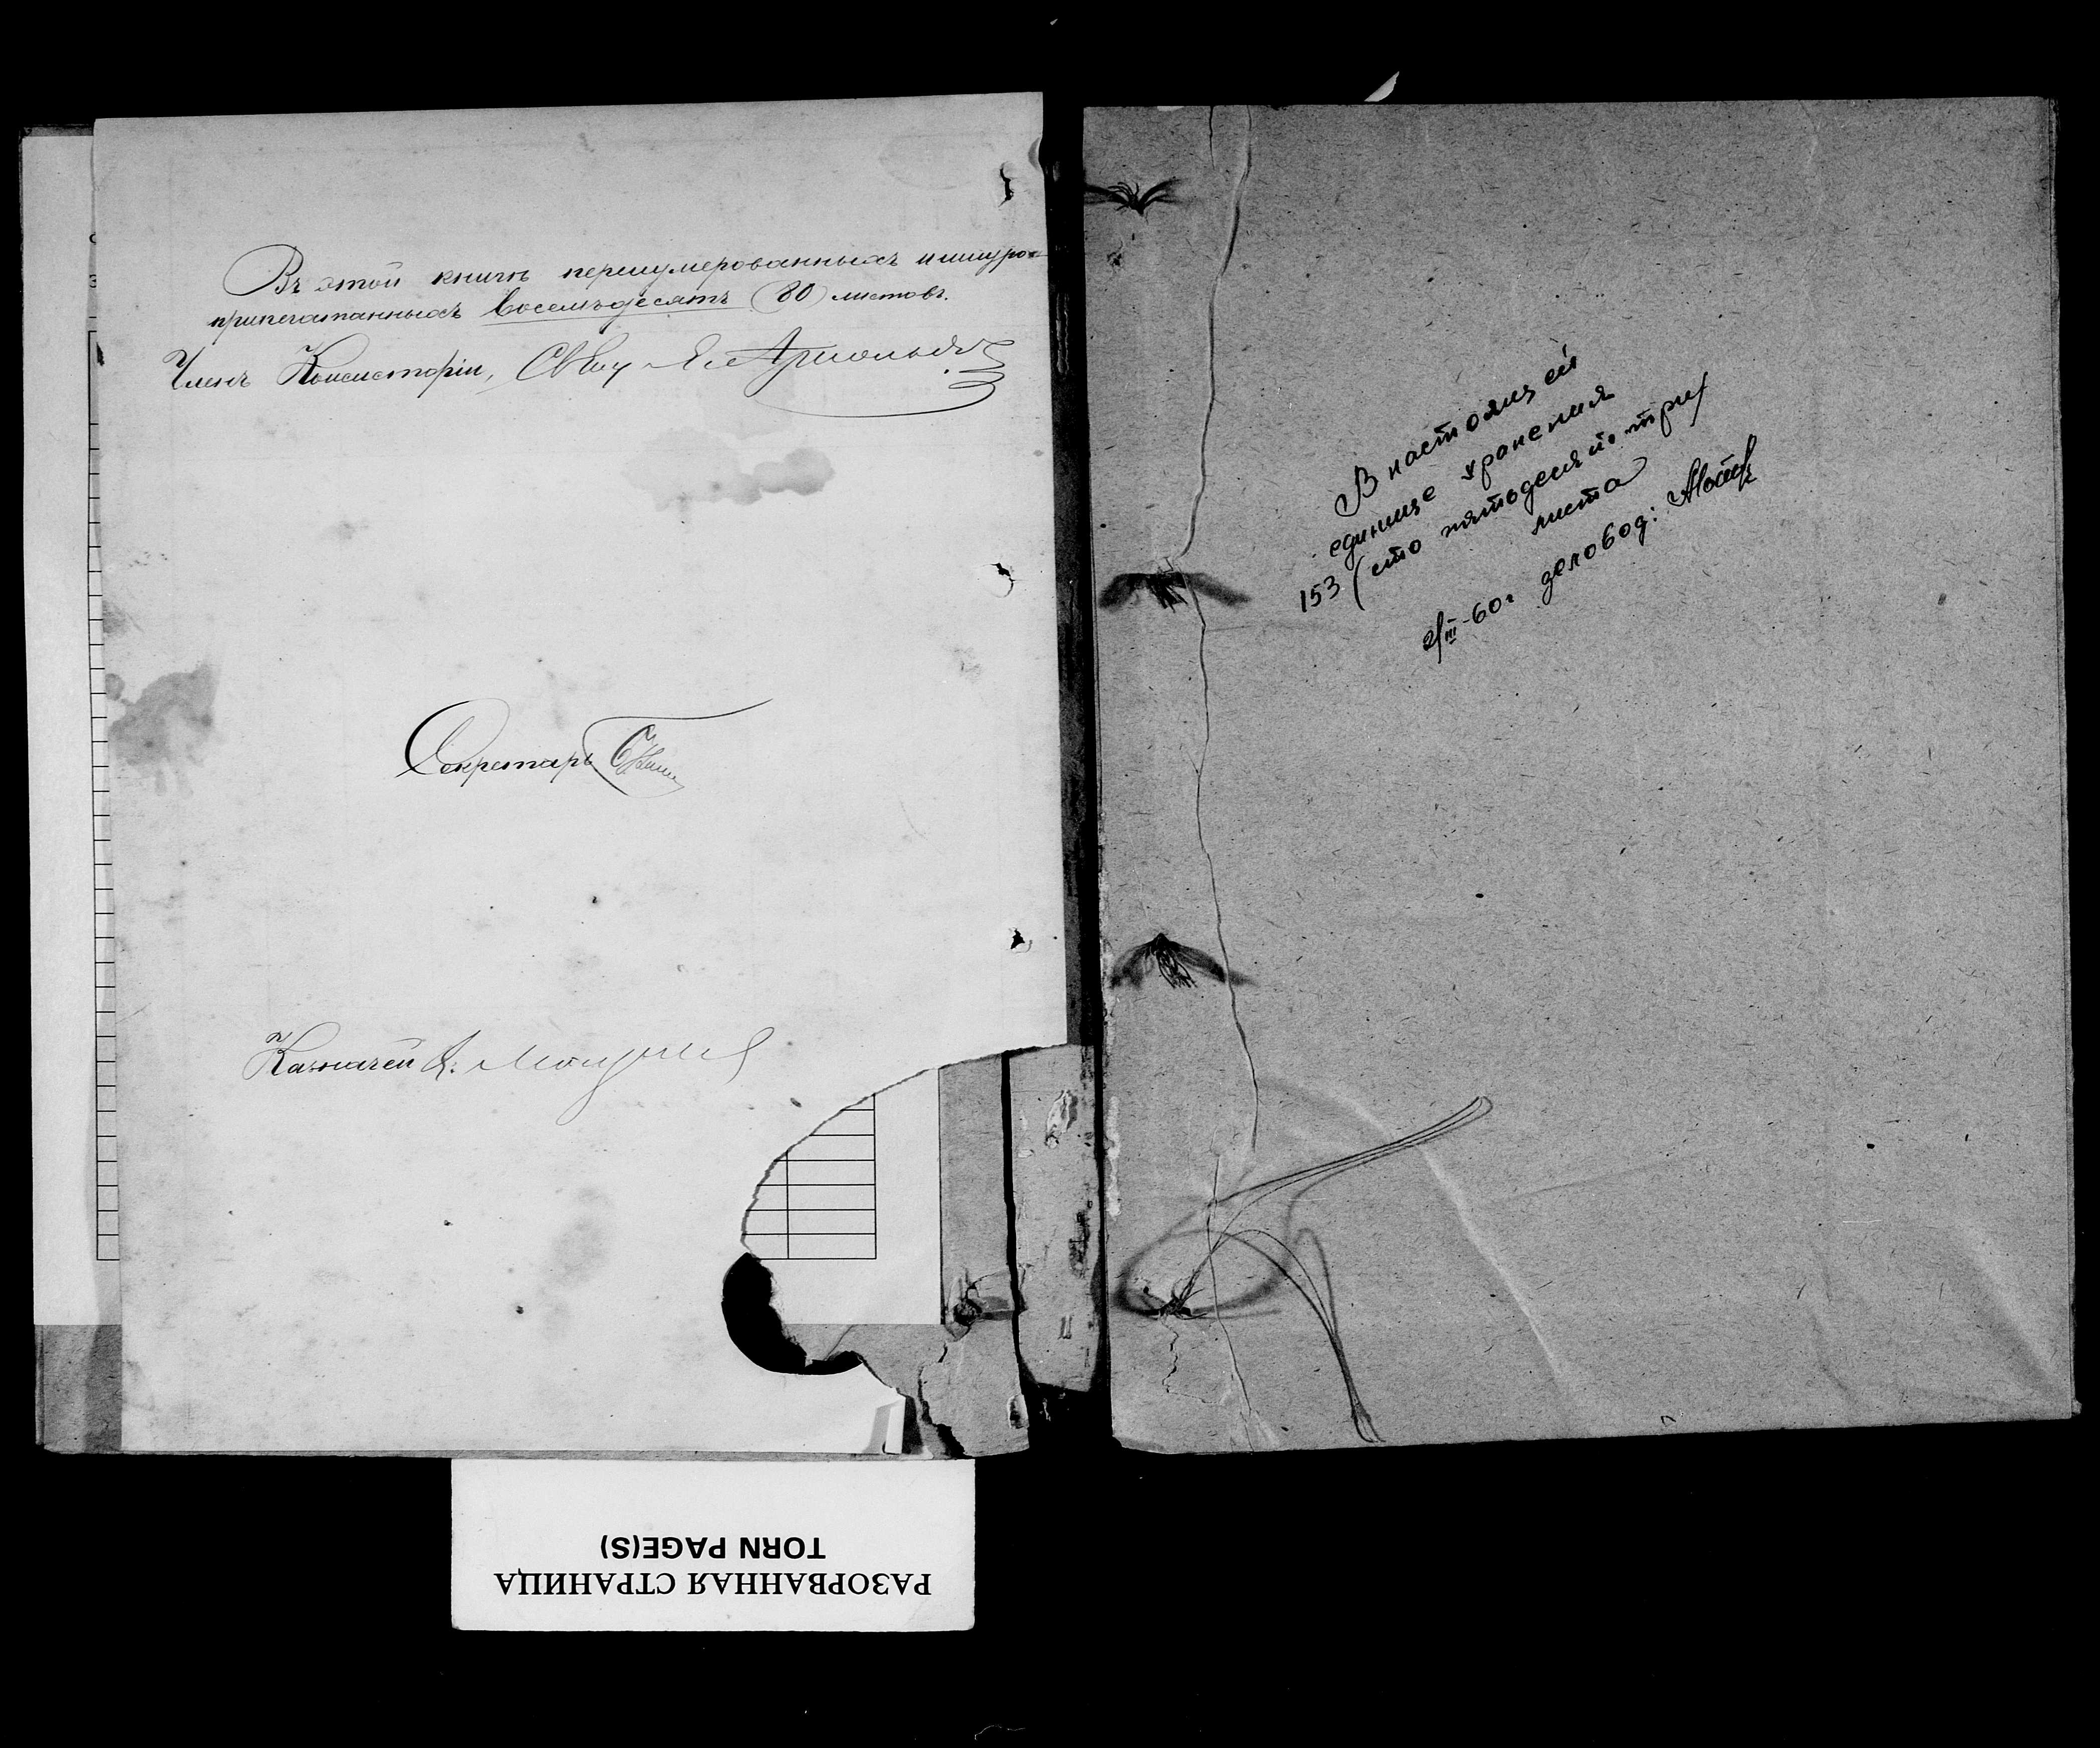 Въ этой книгѣ перенумерованныхъ и шнуро=
припечатанныхъ восемьдесятъ (80) листовъ.
Членъ Консисторіи,
Секретарь
Казначей
В настоящей
единице хранения
153 (сто пятьдесят три)
листа
2/III-60г деловод:
РАЗОРВАННАЯ СТРАНИЦА
TORN PAGE(S)